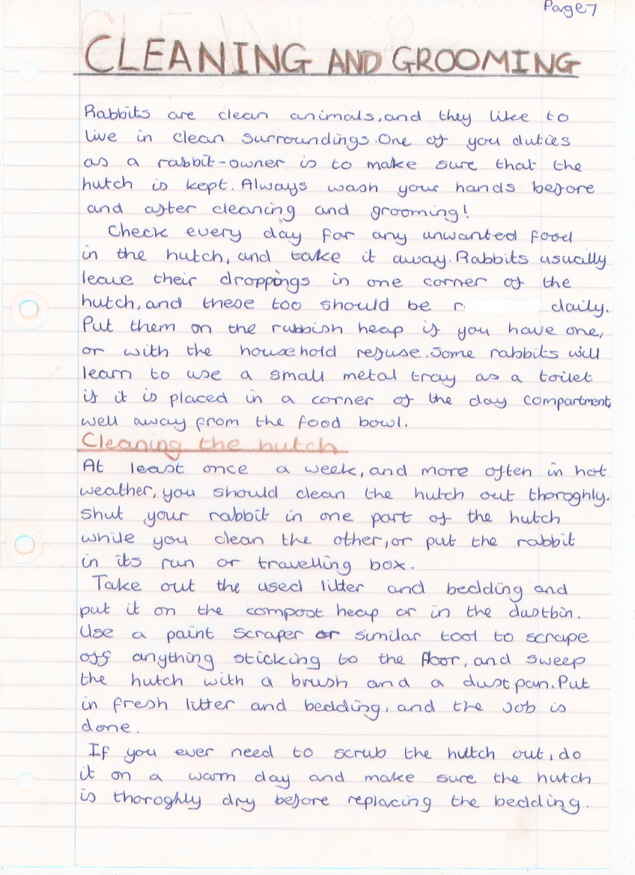 Page 7
CLEANING AND GROOMING
Rabbits are clean animals, and they like to
live in clean surroundings. One of you duties
as a rabbit-owner is to make sure that the
hutch is kept. Always wash your hands before
and after cleaning and grooming!
Check every day for any unwanted food
in the hutch, and take it away. Rabbits usually
leave their droppings in one corner of the
hutch, and these too should be daily.
Put them on the rubbish heap if you have one,
or with the household refuse. Some rabbits will
learn to use a small metal tray as a toilet
if it is placed in a corner of the day compartment
well away from the food bowl.
Cleaning the hutch
At least once a week, and more often in hot
weather, you should clean the hutch out thoroghly.
Shut your rabbit in one part of the hutch
while you clean the other, or put the rabbit
in its run or travelling box.
Take out the used litter and bedding and
put it on the compost heap or in the dustbin.
Use a paint scraper or similar tool to scrape
off anything sticking to the floor, and sweep
the hutch with a brush and a dustpan. Put
in fresh litter and bedding, and the job is
done.
If you ever need to scrub the hutch out, do
it on a warm day and make sure the hutch
is thoroghly dry before replacing the bedding.